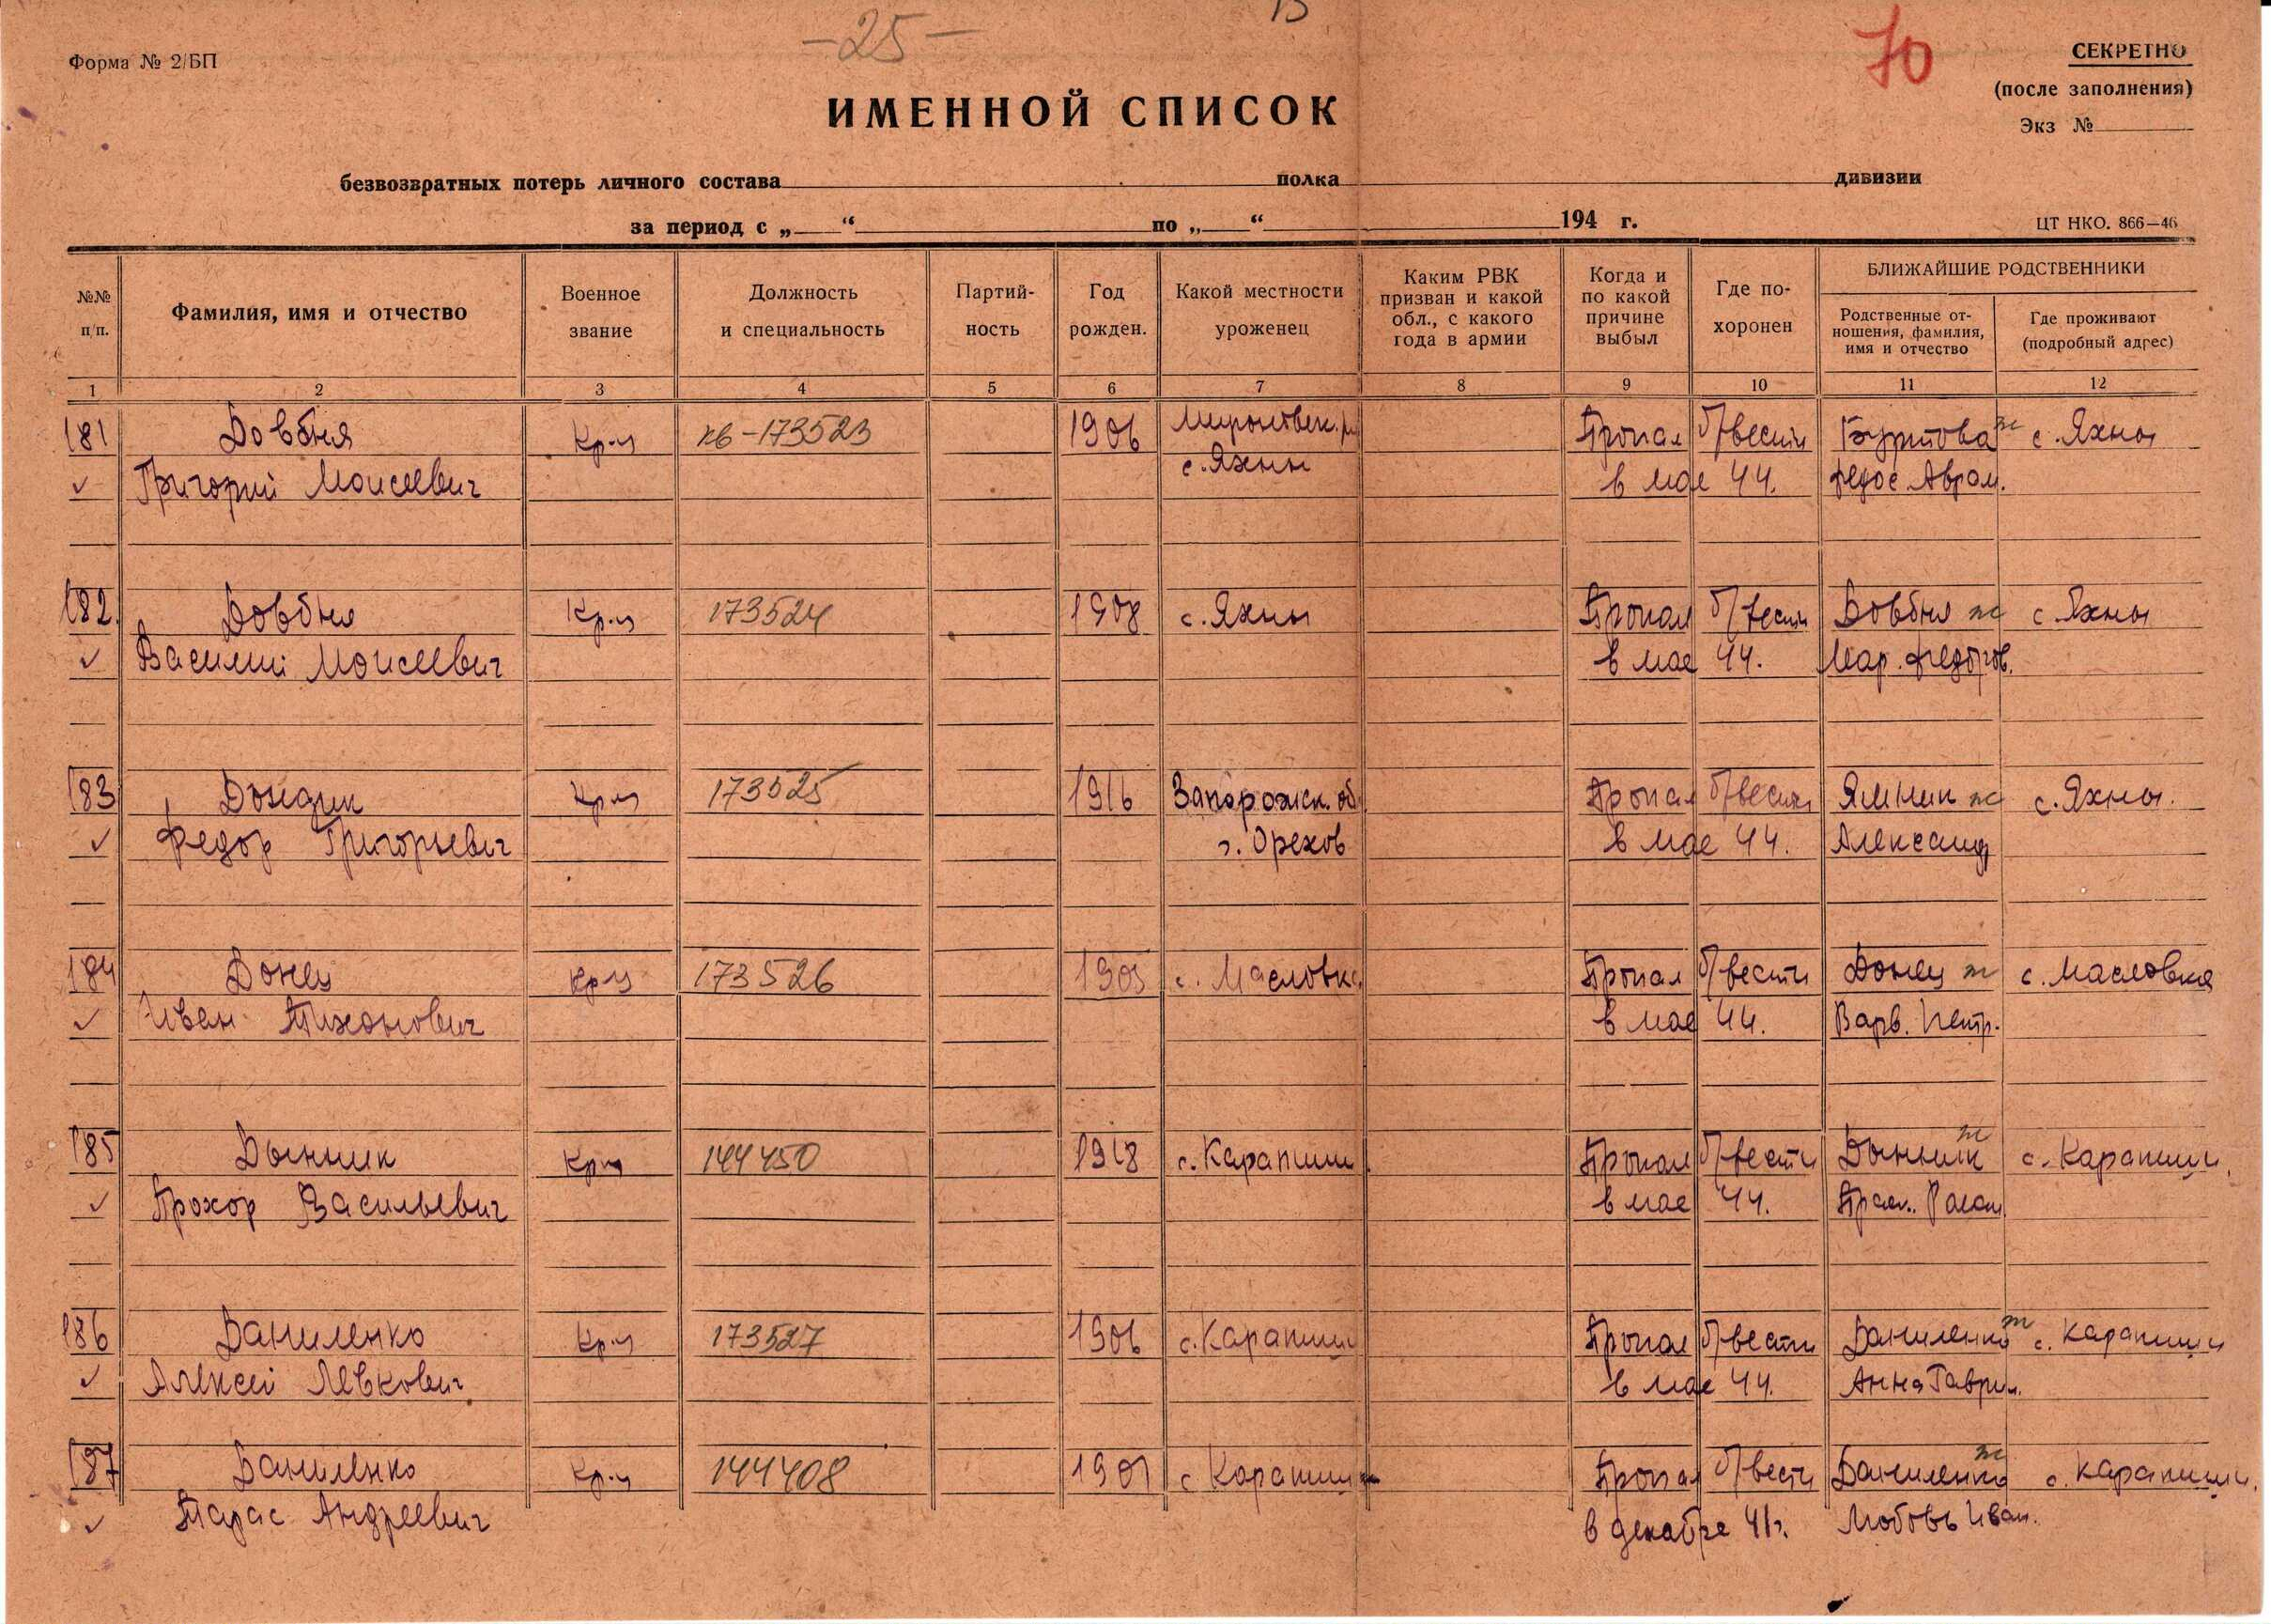 -25-
13
70
Форма № 2/БП
СЕКРЕТНО
(после заполнения)
Экз №
ИМЕННОЙ СПИСОК
безвозвратных потерь личного состава полка дивизии
за период с „ “ по „ “ 194 г.
ЦТ НКО. 866—46
№№ п/п.
Фамилия, имя и отчество
Военное звание
Должность и специальность
Партий-
ность
Год рожден.
Какой местности уроженец
Каким РВК
призван и какой
обл., с какого
года в армии
Когда и
по какой
причине
выбыл
Где по-
хоронен
БЛИЖАЙШИЕ РОДСТВЕННИКИ
Родственные от-
ношения, фамилия,
имя и отчество
Где проживают
(подробный адрес)
1 2 3 4 5 6 7 8 9 10 11 12
181 Довбня Кр-ц кв-173523 1906 Мироновск. р. Пропал б/вести ж с. Яхны
с. Яхны
Григорий Моисеевич в мае 44. Федос. Аврам.
182. Довбня Кр-ц 173524 1908 с. Яхны Пропал б/вести Довбня ж с Яхны
Василий Моисеевич в мае 44. Мар. Федоров.
183 Дондик Кр-ц 173525 1916 Запорожск. об Пропал б/вести Ямник ж с. Яхны.
Федор Григорьевич г. Орехов в мае 44. Александ
184 Донец Кр-ц 173526 1905 с. Масловка Пропал б/вести Донец ж с. Масловка
Иван Тихонович в мае 44. Варв. Петр.
185 Дынник Кр-ц 144450 1918 с. Карапиши Пропал б/вести Дынник ж с. Карапиши.
Прохор Васильевич в мае 44.
186 Даниленко Кр-ц 173527 1906 с. Карапиши Пропал б/вести Даниленко ж с. Карапиши
Алексей Левкович в мае 44. Анна Гаврил.
187 Даниленко Кр-ц 144408 1901 с Карапиши Пропал б/вести Даниленко ж с. Карапиши.
Тарас Андреевич в декабре 41г. Любовь Иван.